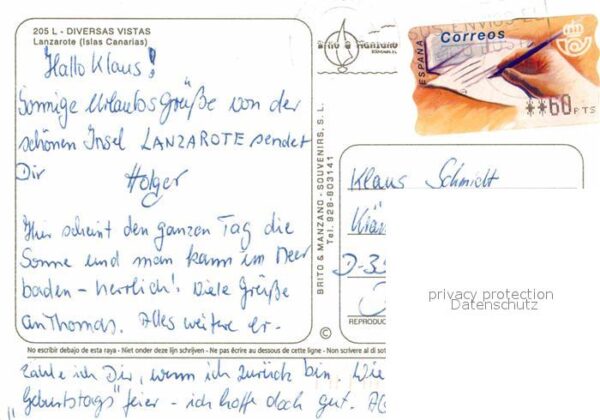 205 L - DIVERSAS VISTAS
Lanzarote (Islas Canarias)
Hallo Klaus!
Sonnige Urlaubsgrüße von der
schönen Insel LANZAROTE sendet
Dir Holger
Hier scheint den ganzen Tag die
Sonne und man kann im Meer
baden - herrlich! Viele Grüße
an Thomas. Alles weitere er-
No escribir debajo de esta raya - Niet onder deze lijn schrijven - Ne pas écrire au dessous de cette ligne - Non scrivere al di sot
zähle ich Dir, wenn ich zurück bin. Wie
"Geburtstags" feier - ich hoffe doch gut.
BRITO & MANZANO - SOUVENIRS, S.L.
Tel. 928-803141
©
ESPAÑA
Correos
**60 PTS
Klaus Schmidt
D-35
REPRODUC
privacy protection
Datenschutz